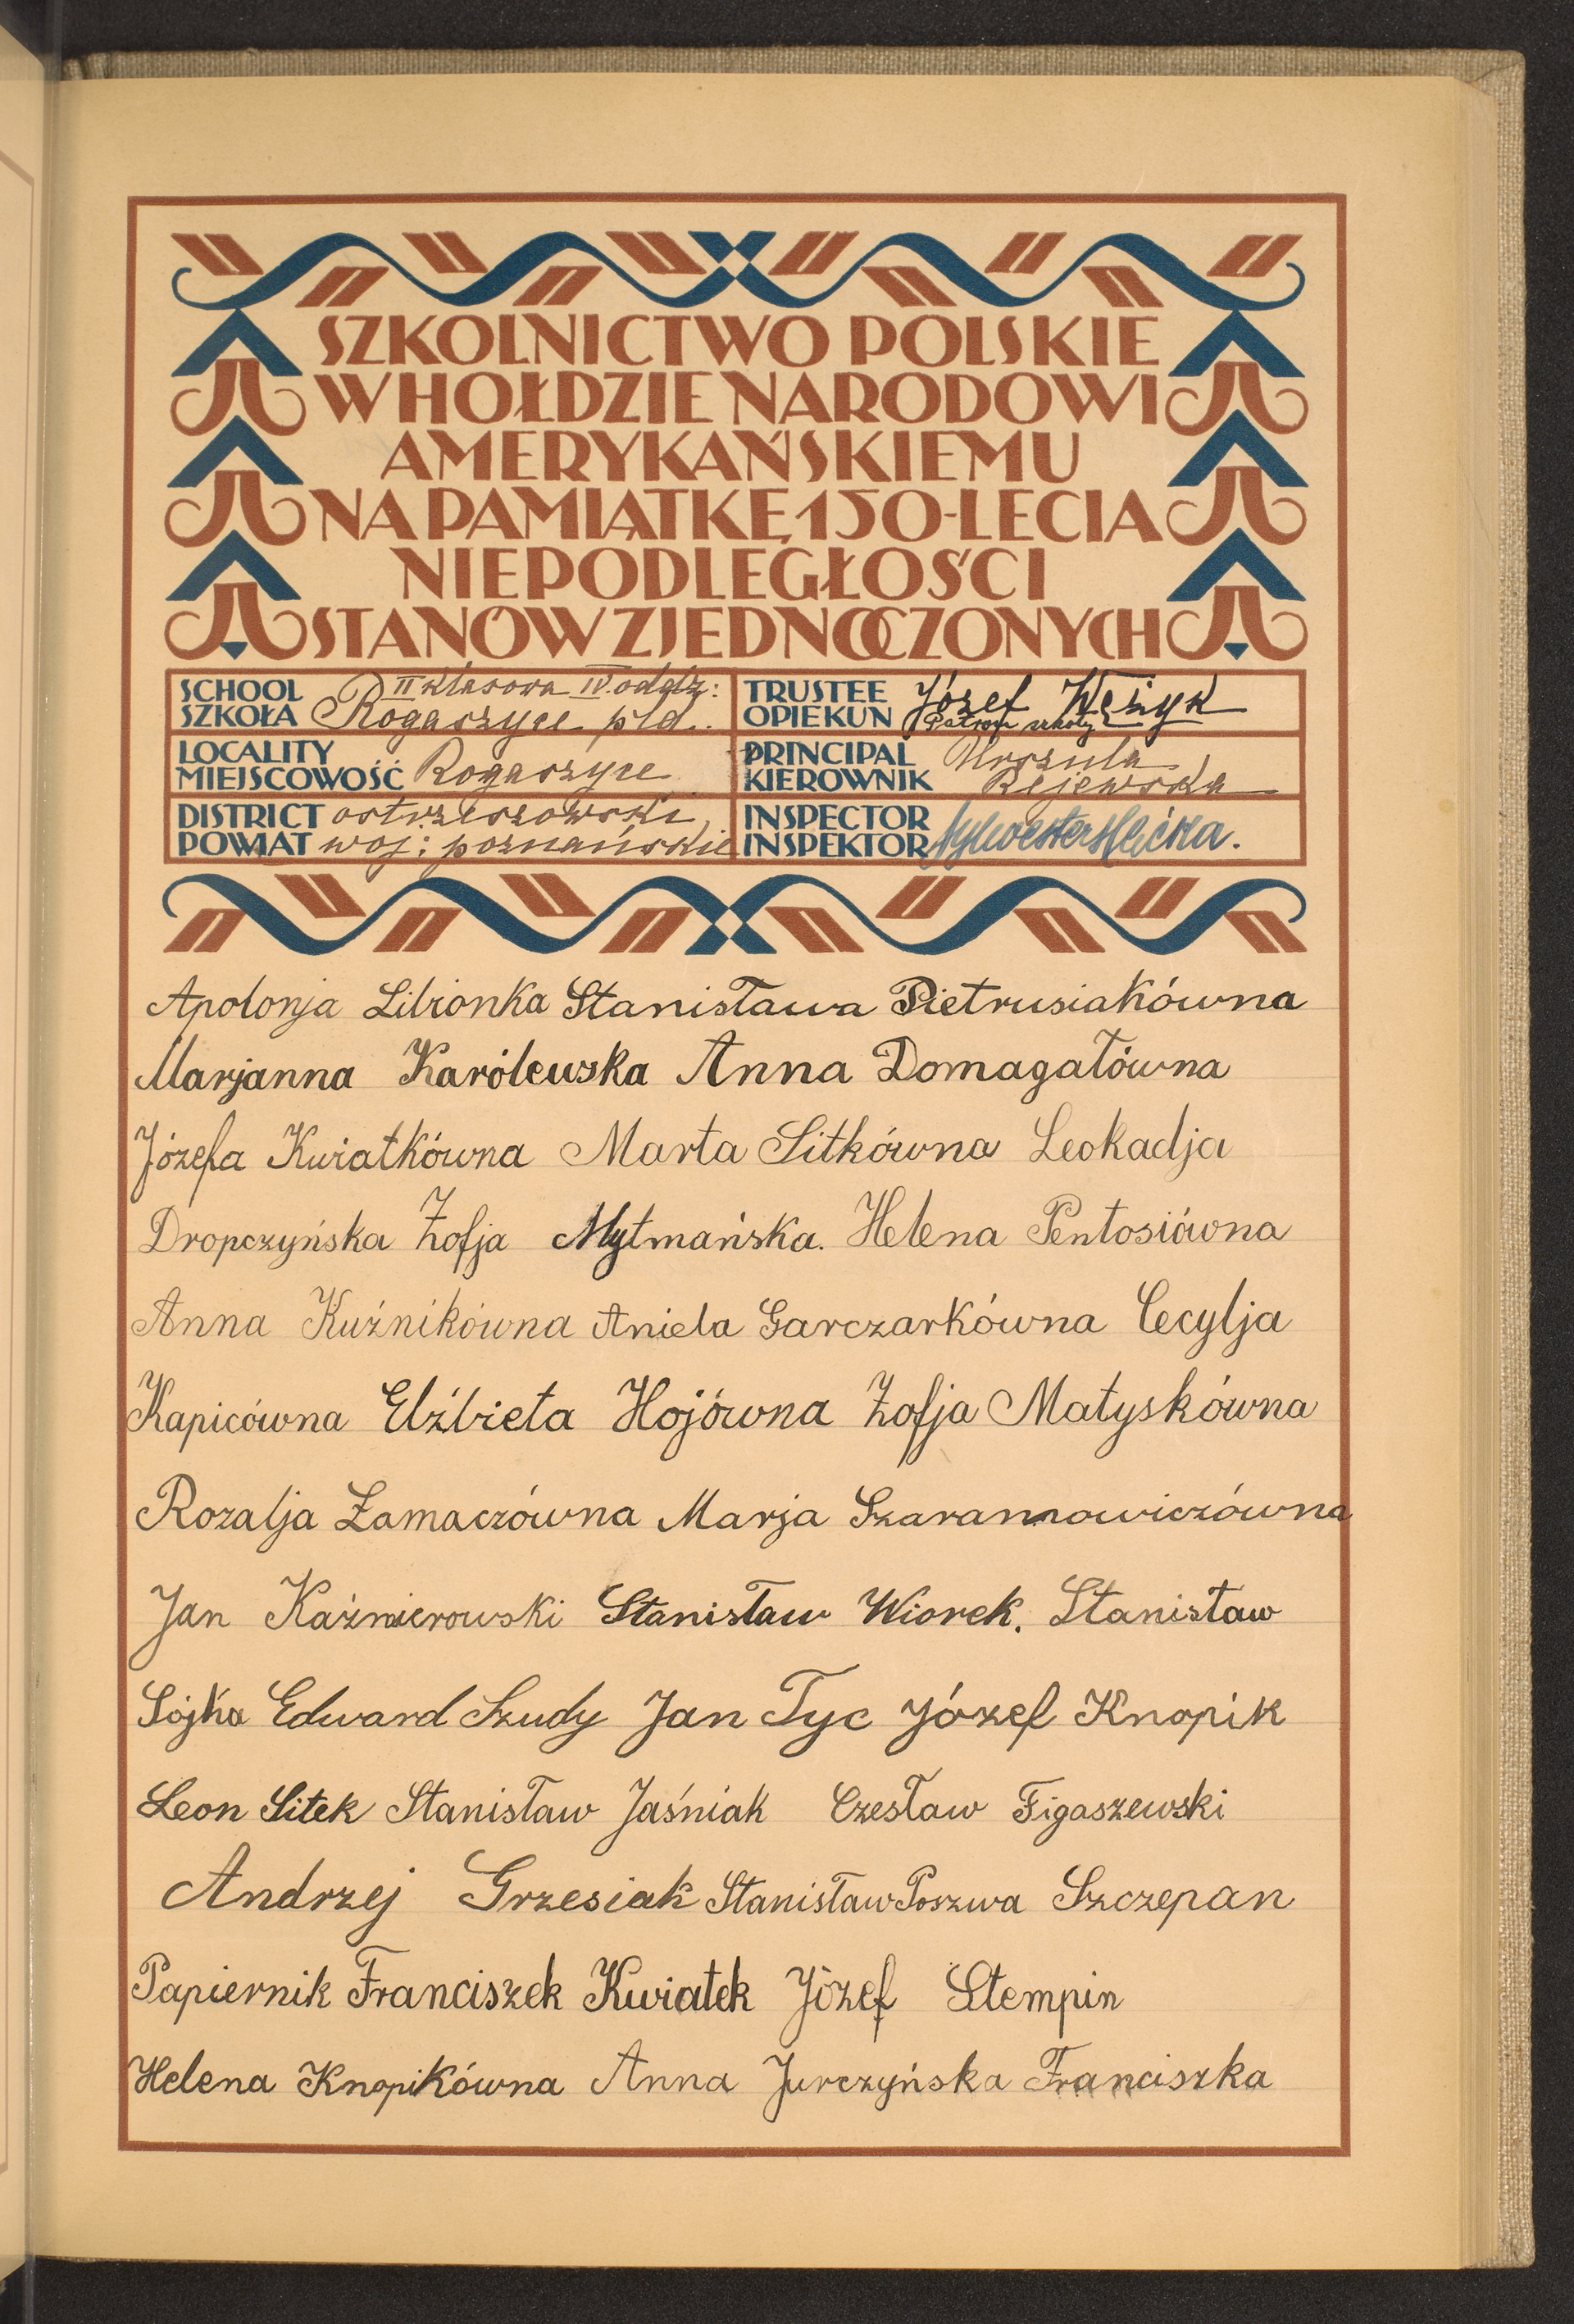 SZKOLNICTWO POLSKIE
W HOŁDZIE NARODOWI
AMERYKAŃSKIEMU
NA PAMIĄTKĘ 150-LECIA
NIEPODLEGŁOŚCI
STANÓW ZJEDNOCZONYCH
SCHOOL
SZKOŁA
II klasowa IV. oddz:
Rogaszyce pld.
TRUSTEE
OPIEKUN
Józef Wężyk
Patron szkoły
LOCALITY
MIEJSCOWOŚĆ
Rogaszyce
PRINCIPAL
KIEROWNIK
Urszula
Rejewska
DISTRICT
POWIAT
ostrzeszowski,
woj: poznańskie
INSPECTOR
INSPEKTOR
Sylwester
Apolonja Libionka Stanisława Pietrusiakówna
Marjanna Karólewska Anna Domagałówna
Józefa Kwiatkówna Marta Sitkówna Leokadja
Dropczyńska Zofja Mytmańska. Helena Pentosiówna
Anna Kuźnikówna Aniela Garczarkówna Cecylja
Kapicówna Elżbieta Hojówna Zofja Matyskówna
Rozalja Łamaczówna Marja Szaramowiczówna
Jan Kaźmierowski Stanisław Wiorek. Stanisław
Sójka Edward Szudy Jan Tyc Józef Knopik
Leon Sitek Stanisław Jaśniak Czesław Figaszewski
Andrzej Grzesiak Stanisław Poszwa Szczepan
Papiernik Franciszek Kwiatek Józef Stempin
Helena Knopikówna Anna Jurczyńska Franciszka